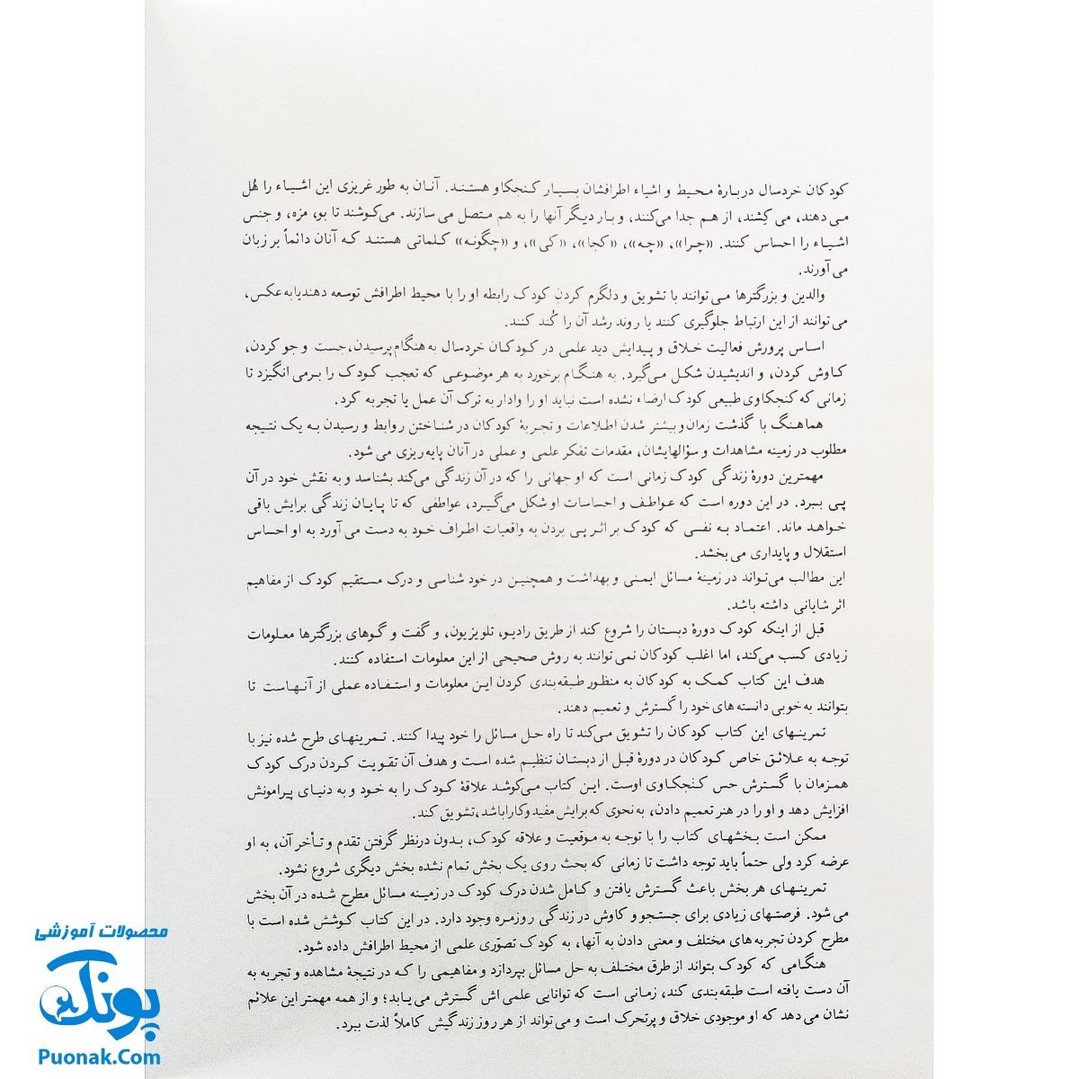 کودکان خردسال دربارهٔ محیط و اشیاء اطرافشان بسیار کنجکاو هستند. آنان به طور غریزی این اشیاء را هُل
می دهند، می کِشند، از هم جدا می‌کنند، و بار دیگر آنها را به هم متصل می سازند. می‌کوشند تا بو، مزه، و جنس
اشیاء را احساس کنند. «چرا»، «چه»، «کجا»، «کی»، و «چگونه» کلماتی هستند که آنان دائماً بر زبان
می آورند.
والدین و بزرگترها می توانند با تشویق و دلگرم کردنِ کودک رابطه او را با محیط اطرافش توسعه دهند یا به عکس،
می توانند از این ارتباط جلوگیری کنند یا روند رشد آن را کُند کنند.
اساس پرورش فعالیت خلاق و پیدایش دید علمی در کودکان خردسال به هنگام پرسیدن، جست و جو کردن،
کاوش کردن، و اندیشیدن شکل می‌گیرد. به هنگام برخورد به هر موضوعی که تعجب کودک را برمی انگیزد تا
زمانی که کنجکاوی طبیعی کودک ارضاء نشده است نباید او را وادار به ترک آن عمل یا تجربه کرد.
هماهنگ با گذشت زمان و بیشتر شدن اطلاعات و تجربهٔ کودکان در شناختن روابط و رسیدن به یک نتیجه
مطلوب در زمینه مشاهدات و سؤالهایشان، مقدمات تفکر علمی و عملی در آنان پایه ریزی می شود.
مهمترین دورهٔ زندگی کودک زمانی است که او جهانی را که در آن زندگی می‌کند بشناسد و به نقش خود در آن
پی ببرد. در این دوره است که عواطف و احساسات او شکل می‌گیرد، عواطفی که تا پایان زندگی برایش باقی
خواهد ماند. اعتماد به نفسی که کودک بر اثر پی بردن به واقعیات اطراف خود به دست می آورد به او احساس
استقلال و پایداری می بخشد.
این مطالب می‌تواند در زمینهٔ مسائل ایمنی و بهداشت و همچنین در خود شناسی و درک مستقیم کودک از مفاهیم
اثر شایانی داشته باشد.
قبل از اینکه کودک دورهٔ دبستان را شروع کند از طریق رادیو، تلویزیون، و گفت و گوهای بزرگترها معلومات
زیادی کسب می‌کند، اما اغلب کودکان نمی توانند به روش صحیحی از این معلومات استفاده کنند.
هدف این کتاب کمک به کودکان به منظور طبقه بندی کردن این معلومات و استفاده عملی از آنهاست تا
بتوانند به خوبی دانسته های خود را گسترش و تعمیم دهند.
تمرینهای این کتاب کودکان را تشویق می‌کند تا راه حل مسائل را خود پیدا کنند. تمرینهای طرح شده نیز با
توجه به علائق خاص کودکان در دورهٔ قبل از دبستان تنظیم شده است و هدف آن تقویت کردن درک کودک
همزمان با گسترش حس کنجکاوی اوست. این کتاب می‌کوشد علاقهٔ کودک را به خود و به دنیای پیرامونش
افزایش دهد و او را در هنر تعمیم دادن، به نحوی که برایش مفید و کارا باشد، تشویق کند.
ممکن است بخشهای کتاب را با توجه به موقعیت و علاقه کودک، بدون درنظر گرفتن تقدم و تأخر آن، به او
عرضه کرد ولی حتماً باید توجه داشت تا زمانی که بحث روی یک بخش تمام نشده بخش دیگری شروع نشود.
تمرینهای هر بخش باعث گسترش یافتن و کامل شدن درک کودک در زمینه مسائل مطرح شده در آن بخش
می شود. فرصتهای زیادی برای جستجو و کاوش در زندگی روزمره وجود دارد. در این کتاب کوشش شده است با
مطرح کردن تجربه های مختلف و معنی دادن به آنها، به کودک تصوّری علمی از محیط اطرافش داده شود.
هنگامی که کودک بتواند از طرق مختلف به حل مسائل بپردازد و مفاهیمی را که در نتیجهٔ مشاهده و تجربه به
آن دست یافته است طبقه بندی کند، زمانی است که توانایی علمی اش گسترش می یابد؛ و از همه مهمتر این علائم
نشان می دهد که او موجودی خلاق و پرتحرک است و می‌تواند از هر روز زندگیش کاملاً لذت ببرد.
محصولات آموزشی
پونک
Puonak.Com